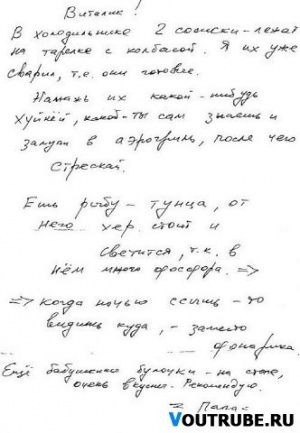 Виталик!
В холодильнике 2 сосиски - лежат
на тарелке с колбасой. Я их уже
сварил, т.е. они готовые.
Намажь их какой-нибудь
хуйнёй, какой - ты сам знаешь и
запули в аэрогриль, после чего
стрескай.
Ешь рыбу - тунца, от
него хер стоит и
светится, т.к. в
нём много фосфора. =>
=> когда ночью ссышь - то
видишь куда, - заместо
фонарика.
Ещё бабушкины булочки - на столе,
очень вкусные. Рекомендую.
Папа
YOUTRUBE.RU